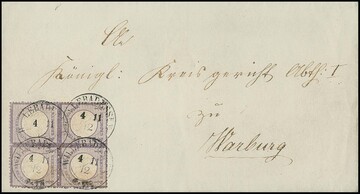 An
Königl: Kreisgericht Abth: I
zu
Warburg
4 11
4 11